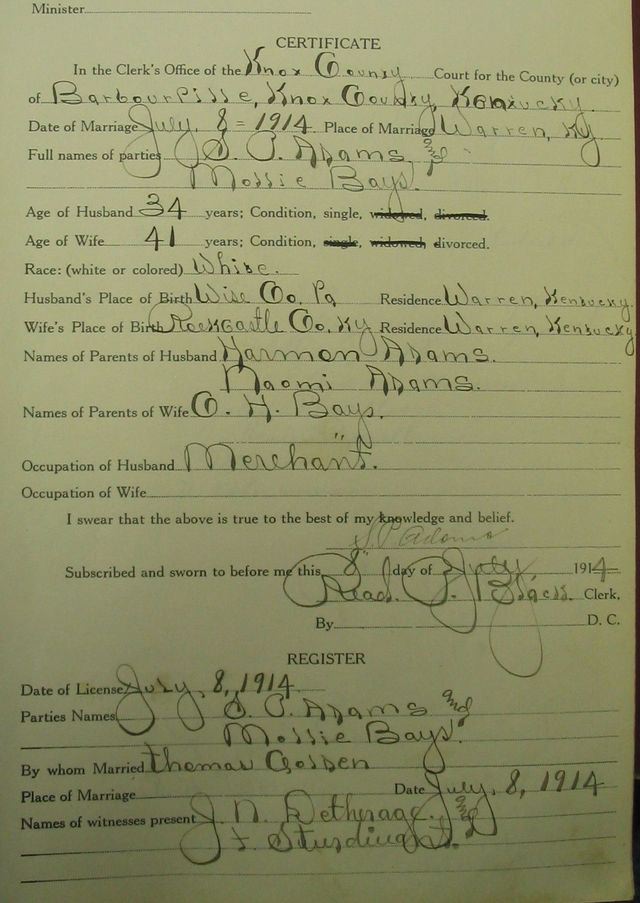 Minister
CERTIFICATE
In the Clerk's Office of the Knox County Court for the County (or city)
of Barbourville, Knox County, Kentucky.
Date of Marriage July, 8 = 1914. Place of Marriage Warren, Ky
Full names of parties S. P. Adams and
Mossie Bays.
Age of Husband 34 years; Condition, single, widowed, divorced.
Age of Wife 41 years; Condition, single, widowed, divorced.
Race: (white or colored) White.
Husband's Place of Birth Wise Co. Va Residence Warren, Kentucky.
Wife's Place of Birth Rockcastle Co. Ky Residence Warren, Kentucky
Names of Parents of Husband Harmon Adams.
Naomi Adams.
Names of Parents of Wife O. H. Bays.
"
Occupation of Husband Merchant.
Occupation of Wife
I swear that the above is true to the best of my knowledge and belief.
S. P. Adams
Subscribed and sworn to before me this 8" day of July 1914
Read P. Clerk.
By D. C.
REGISTER
Date of License July, 8, 1914
Parties Names S. P. Adams and
Mossie Bays.
By whom Married Thomas Golden
Place of Marriage Date July, 8, 1914
Names of witnesses present J. N. Detherage. and